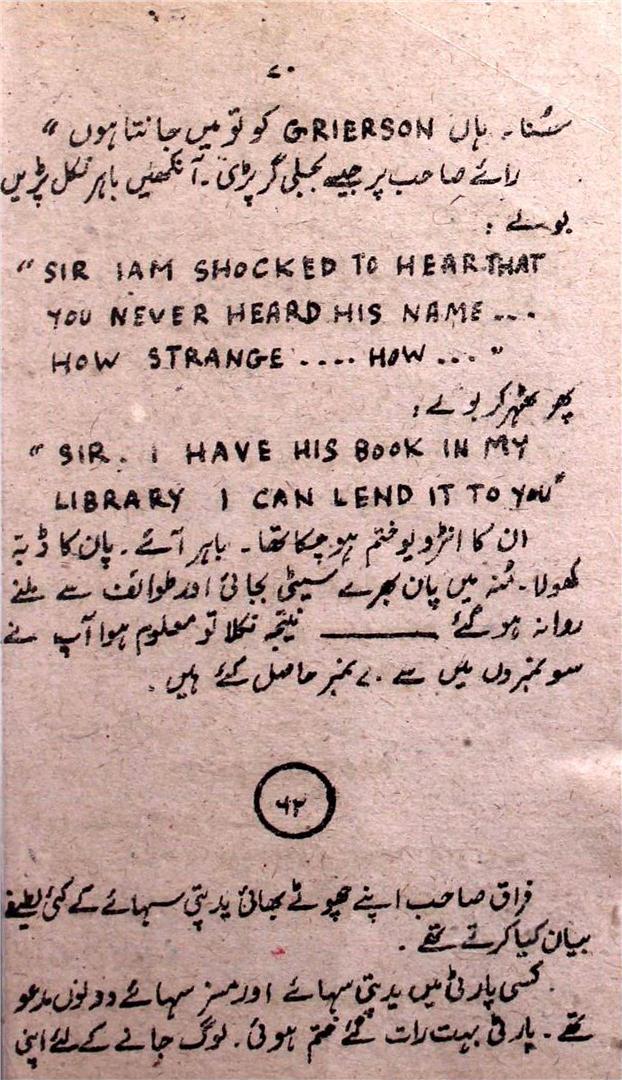 ۷۰
سُنا۔ ہاں GRIERSON کو تو میں جانتا ہوں "
رائے صاحب پر جیسے بجلی گر پڑی۔ آنکھیں باہر نکل پڑیں
بولے :
"SIR IAM SHOCKED TO HEAR THAT
YOU NEVER HEARD HIS NAME ...
HOW STRANGE .... HOW ..."
پھر ٹھہر کر بولے :
"SIR. I HAVE HIS BOOK IN MY
LIBRARY I CAN LEND IT TO YOU"
ان کا انٹرویو ختم ہو چکا تھا۔ باہر آئے۔ پان کا ڈبّہ
کھولا۔ مُنہ میں پان بھرے سیٹی بجائی اور طوائف سے ملنے
روانہ ہو گئے ——— نتیجہ نکلا تو معلوم ہوا آپ نے
سو نمبروں میں سے ۷۰ نمبر حاصل کئے ہیں۔
۶۲
فراق صاحب اپنے چھوٹے بھائی یدپتی سہائے کے کئی لطیفے
بیان کیا کرتے تھے۔
کسی پارٹی میں یدپتی سہائے اور مسز سہائے دونوں مدعو
تھے۔ پارٹی بہت رات گئے ختم ہوئی۔ لوگ جانے کے لئے اپنی